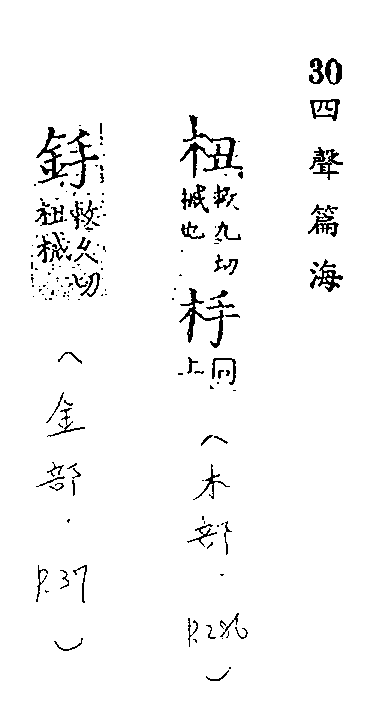 30四聲篇海
杻敕九切械也杽同上(木部.P.286)
敕久切杻械(金部.P.37)